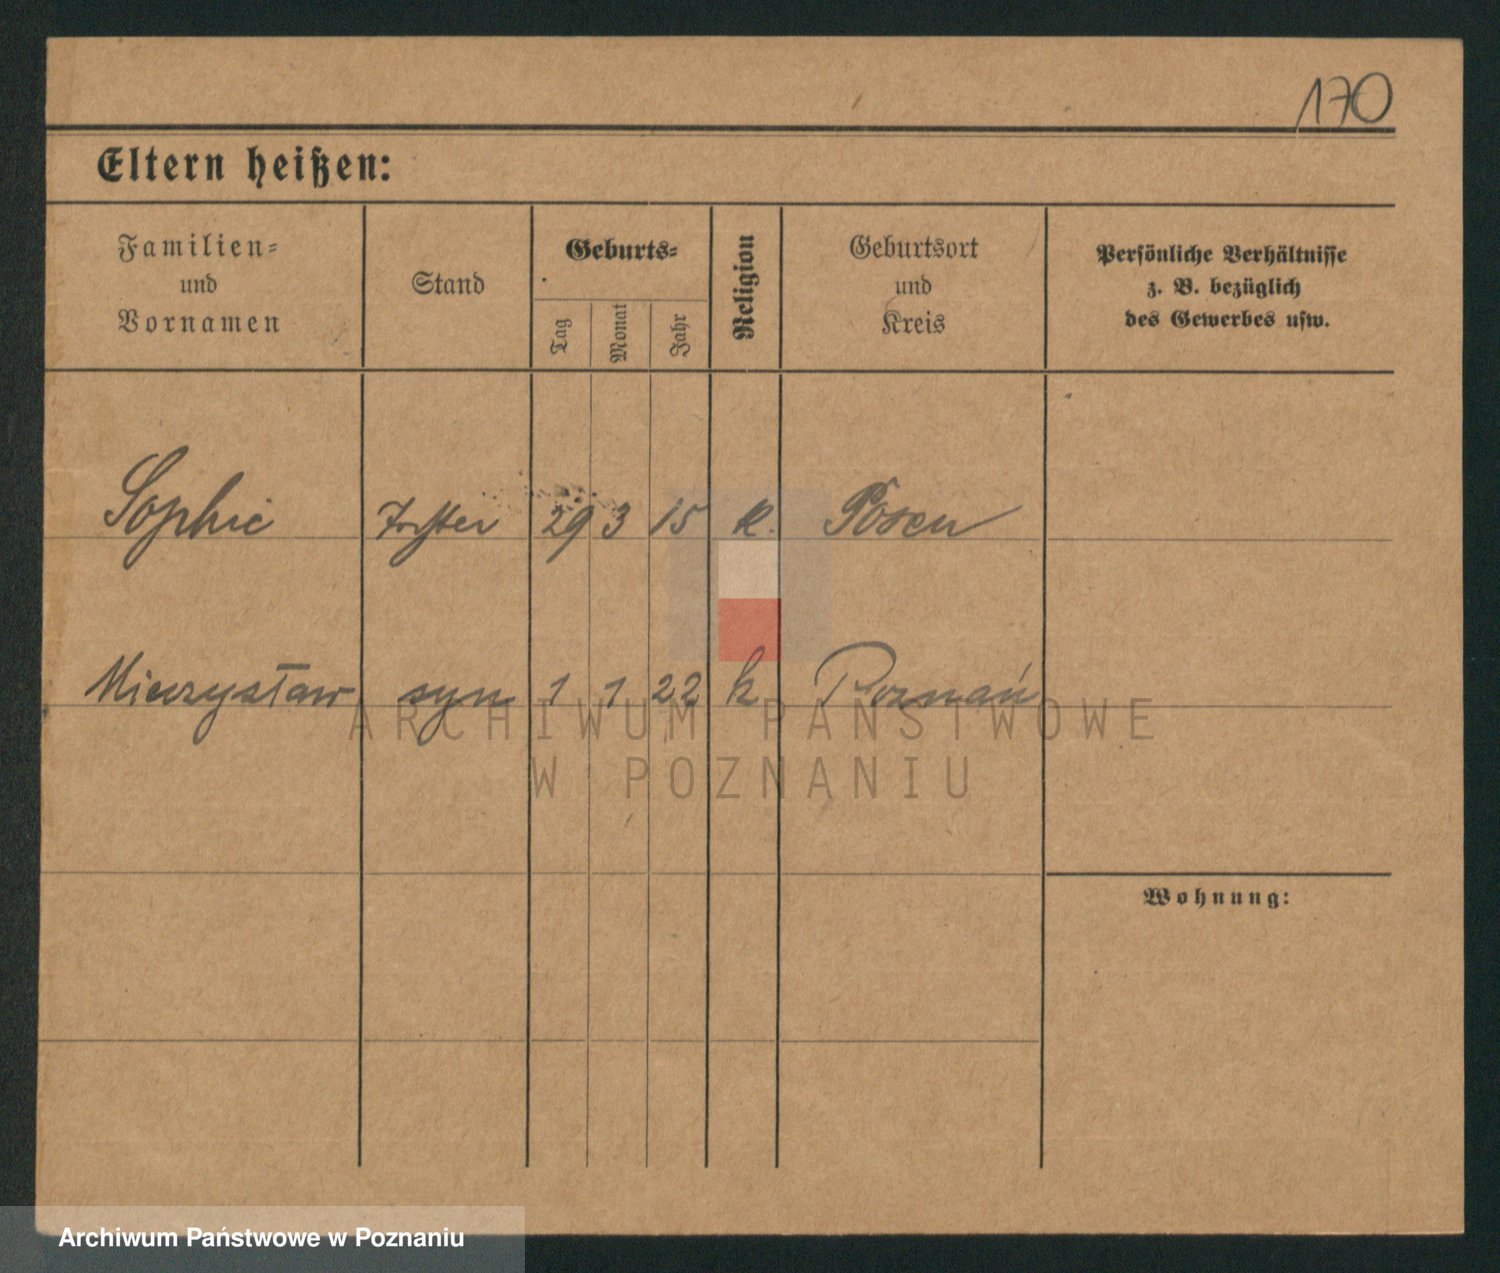 170
Eltern heißen:
Familien-
und
Vornamen
Stand
Geburts-
Tag
Monat
Jahr
Religion
Geburtsort
und
Kreis
Persönliche Verhältnisse
z. B. bezüglich
des Gewerbes usw.
Sophie 29 3 15 k. Posen
Mieczysław syn 1 1 22 k Poznań
ARCHIWUM PAŃSTWOWE
W POZNANIU
Wohnung:
Archiwum Państwowe w Poznaniu